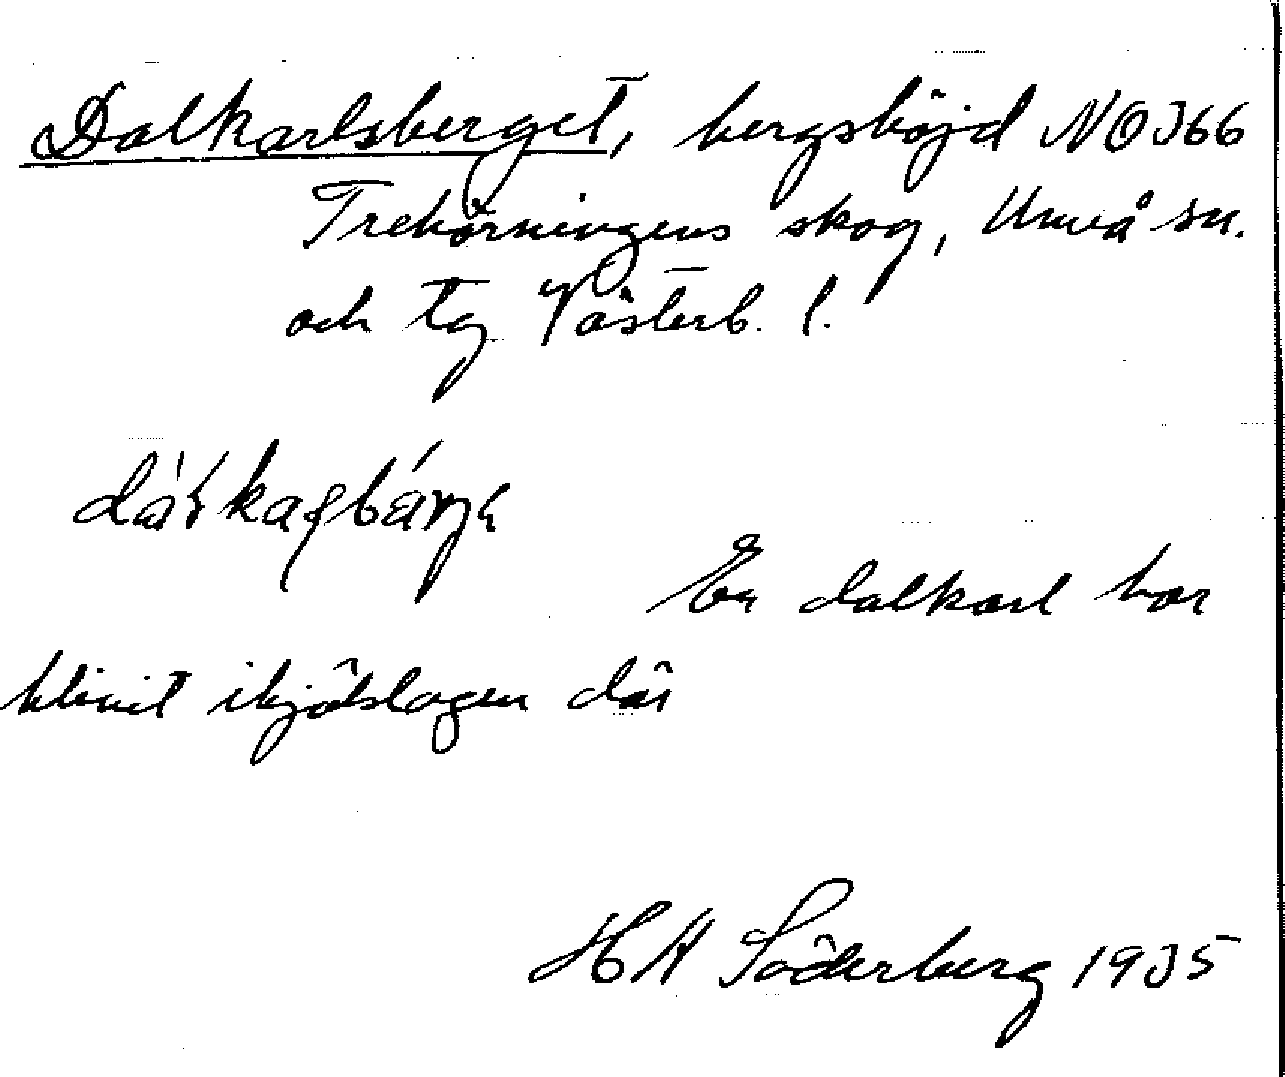 Dalkarlsberget, bergshöjd NO 366
Trehörningens skog, Umeå sn.
och tg Västerb. l.
En dalkarl har
blivit ihjälslagen där
H A Söderberg 1935